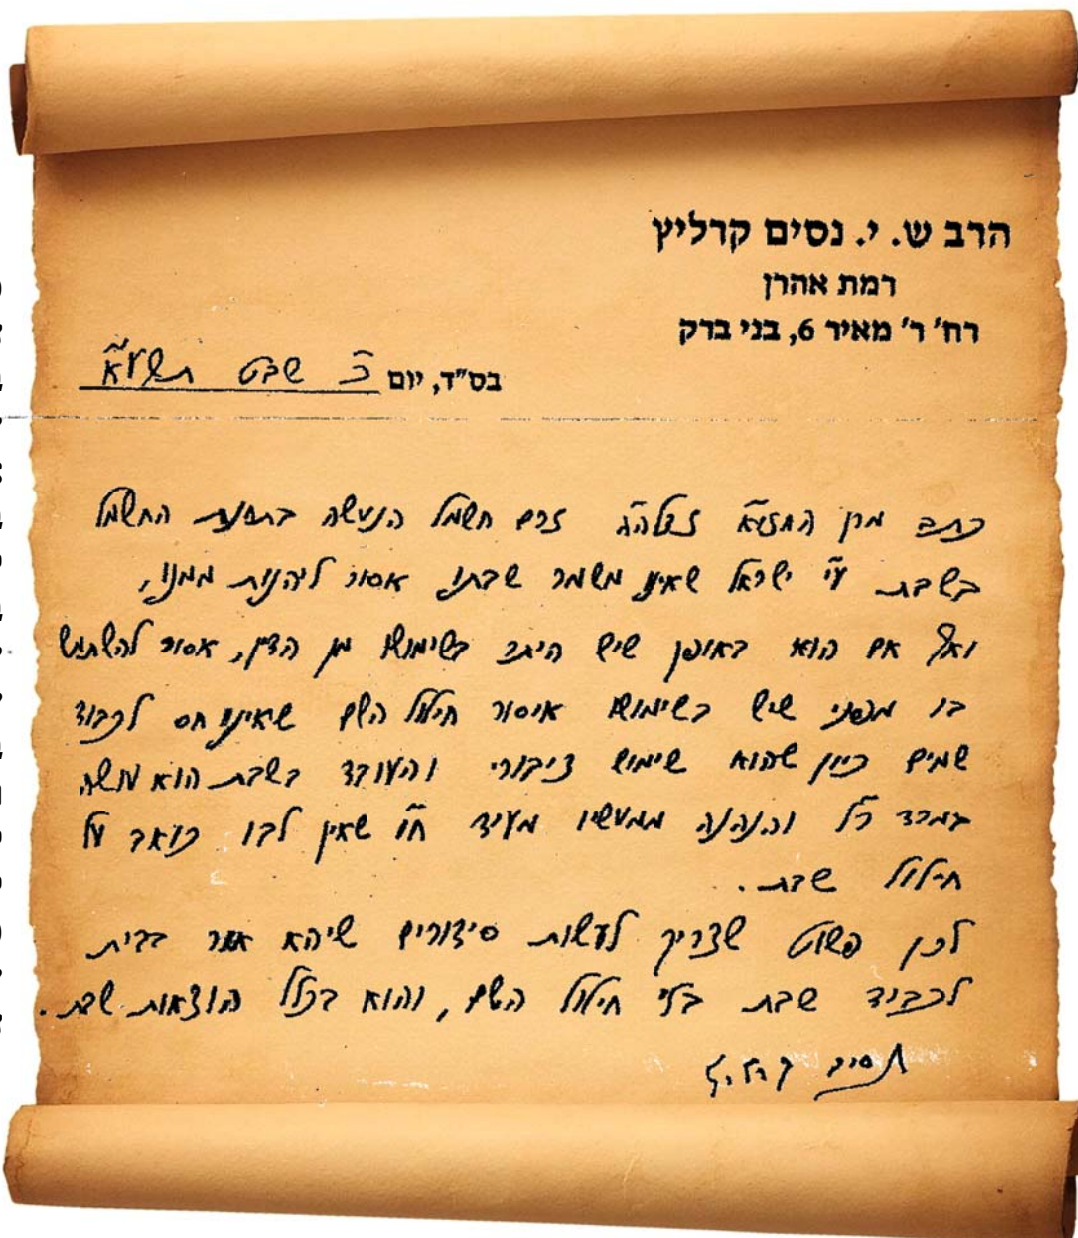 הרב ש. י. נסים קרליץ
רמת אהרן
רח' ר' מאיר 6, בני ברק
בס"ד, יום כ' שבט תשע"א
כתב מרן החזו"א זצללה"ה זרם חשמל הנעשה בתחנת החשמל
בשבת ע"י ישראל שאינו משמר שבתו אסור ליהנות ממנו,
ואף אם הוא באופן שיש היתר בשימושו מן הדין, אסור להשתמש
בו מפני שיש בשימושו איסור חילול השם שאינו חס לכבוד
שמים כיון שהוא שימוש ציבורי והעובד בשבת הוא עושה
במרד ר"ל והנהנה ממעשיו מעיד ח"ו שאין לבו כואב על
חילול שבת.
לכן פשוט שצריך לעשות סידורים שיהא אור בבית
לכבוד שבת בלי חילול השם, והוא בכלל הוצאות שבת.
נסים קרליץ